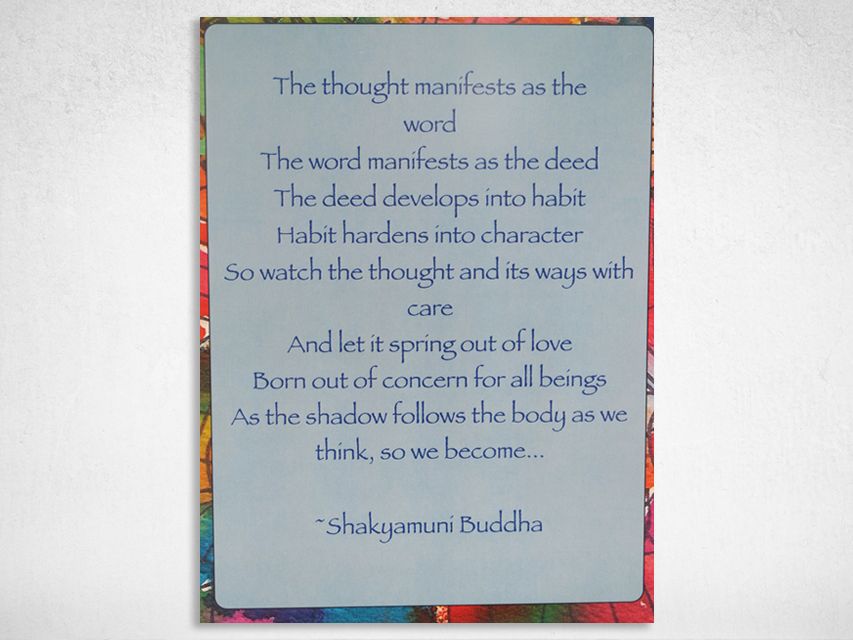 The thought manifests as the
word
The word manifests as the deed
The deed develops into habit
Habit hardens into character
So watch the thought and its ways with
care
And let it spring out of love
Born out of concern for all beings
As the shadow follows the body as we
think, so we become...
~Shakyamuni Buddha